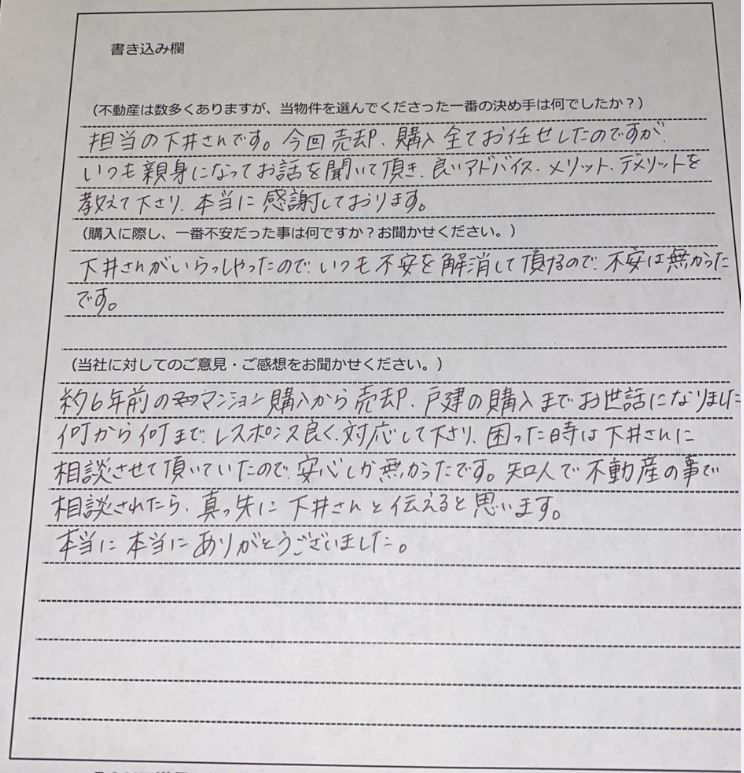 書き込み欄
(不動産は数多くありますが、当物件を選んでくださった一番の決め手は何でしたか？)
担当の下井さんです。今回売却、購入全てお任せしたのですが、
いつも親身になってお話を聞いて頂き、良いアドバイス、メリット、デメリットを
教えて下さり、本当に感謝しております。
(購入に際し、一番不安だった事は何ですか？お聞かせください。)
下井さんがいらっしゃったので、いつも不安を解消して頂けるので、不安は無かった
です。
(当社に対してのご意見・ご感想をお聞かせください。)
約6年前のマンション購入から売却、戸建の購入までお世話になりました
何から何まで、レスポンス良く、対応して下さり、困った時は下井さんに
相談させて頂いていたので、安心しか無かったです。知人で不動産の事で
相談されたら、真っ先に下井さんと伝えると思います。
本当に本当にありがとうございました。